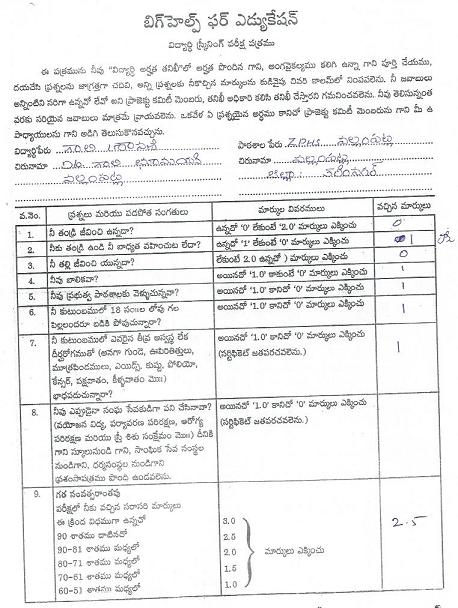 బిగ్‌హెల్ప్ ఫర్ ఎడ్యుకేషన్
విద్యార్థి స్క్రీనింగ్ పరీక్ష పత్రము
ఈ పత్రమును నీవు "విద్యార్థి అర్హత తనిఖీ"లో అర్హత పొందిన గాని, అంగవైకల్యము కలిగి ఉన్నా గాని పూర్తి చేయుము,
దయచేసి ప్రశ్నలను జాగ్రత్తగా చదివి, అన్ని ప్రశ్నలకు నీకొచ్చిన మార్కులను కుడివైపు చివరి కాలమ్‌లో నింపవలెను. నీ జవాబులు
అన్నింటిని సరిగా ఉన్నవో లేవో అని ప్రాజెక్టు కమిటీ మెంబరు, తనిఖీ అధికారి కలిసి తనిఖీ చేస్తారని గమనించవలెను. నీవు తెలుసున్నంత
వరకు సరియైన జవాబులు మాత్రమే వ్రాయవలెను. ఒకవేళ ఏ ప్రశ్నయైన అర్థము కానిచో ప్రాజెక్టు కమిటీ మెంబరును గాని మీ ఉ
పాధ్యాయులను గాని అడిగి తెలుసుకొనవచ్చును.
విద్యార్థిపేరు పాఠశాల పేరు ZPHS
చిరునామా D/o చిరునామా
జిల్లా:
వ.నెం. ప్రశ్నలు మరియు పదపోత సంగతులు మార్కుల వివరములు వచ్చిన మార్కులు
1. నీ తండ్రి జీవించి ఉన్నడా? ఉన్నచో '0' లేకుంటే '2.0' మార్కులు ఎక్కించు 0
2. నీకు తండ్రి ఉండి నీ బాధ్యత వహించుట లేదా? ఉన్నచో '1' లేకుంటే '0' మార్కులు ఎక్కించు 1
3. నీ తల్లి జీవించి యున్నదా? లేకుంటే 2.0 ఉన్నచో ) 0 మార్కులు ఎక్కించు 0
4. నీవు బాలికవా? అయినచో '1.0' కాకుంటే '0' మార్కులు ఎక్కించు 1
5. నీవు ప్రభుత్వ పాఠశాలకు వెళ్ళుచున్నావా? అయినచో '1.0' కానిచో '0' మార్కులు ఎక్కించు 1
6. నీ కుటుంబములో 18 సం॥ల లోపు గల అయినచో '1.0' కానిచో '0' మార్కులు ఎక్కించు 1
పిల్లలందరూ బడికి పోవుచున్నారా?
7. నీ కుటుంబములో ఎవరైన తీవ్ర అస్వస్థ లేక అయినచో '1.0' కానిచో '0' మార్కులు ఎక్కించు 1
దీర్ఘరోగముతో (అనగా గుండె, ఊపిరితిత్తులు, (సర్టిఫికెట్ జతపరచవలెను.)
మూత్రపిండములు, ఎయిడ్స్, కుష్ఠు, పోలియో,
కేన్సర్, పక్షవాతం, కీళ్ళవాతం మొ॥)
భాధపడుచున్నారా?
8. నీవు ఎప్పుడైనా సంఘ సేవకుడిగా పని చేసినావా? అయినచో '1.0' కానిచో '0' మార్కులు ఎక్కించు
(వయోజన విద్య, పర్యావరణ పరిరక్షణ, ఆరోగ్య (సర్టిఫికెట్ జతపరచవలెను.)
పరిరక్షణ మరియు స్త్రీ శిశు సంక్షేమం మొ॥) దీనికి
గాని స్కూలునుండి గాని, సాంఘిక సేవ సంస్థల
నుండిగాని, ధర్మసంస్థల నుండిగాని
ప్రశంసాపత్రము పొంది ఉండవలెను.
9. గత సంవత్సరాంతపు
పరీక్షలో నీకు వచ్చిన సరాసరి మార్కులు
ఈ క్రింద విధముగా ఉన్నచో 2.5
90 శాతము దాటినచో 3.0
90-81 శాతము మధ్యలో 2.5
80-71 శాతము మధ్యలో 2.0 మార్కులు ఎక్కించు
70-61 శాతము మధ్యలో 1.5
60-51 శాతము మధ్యలో 1.0